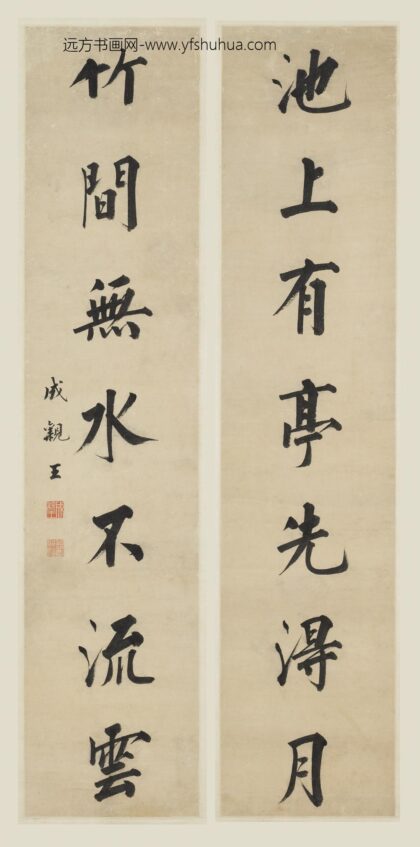 远方书画网-www.yfshuhua.com
池上有亭先得月
竹間無水不流雲
成親王